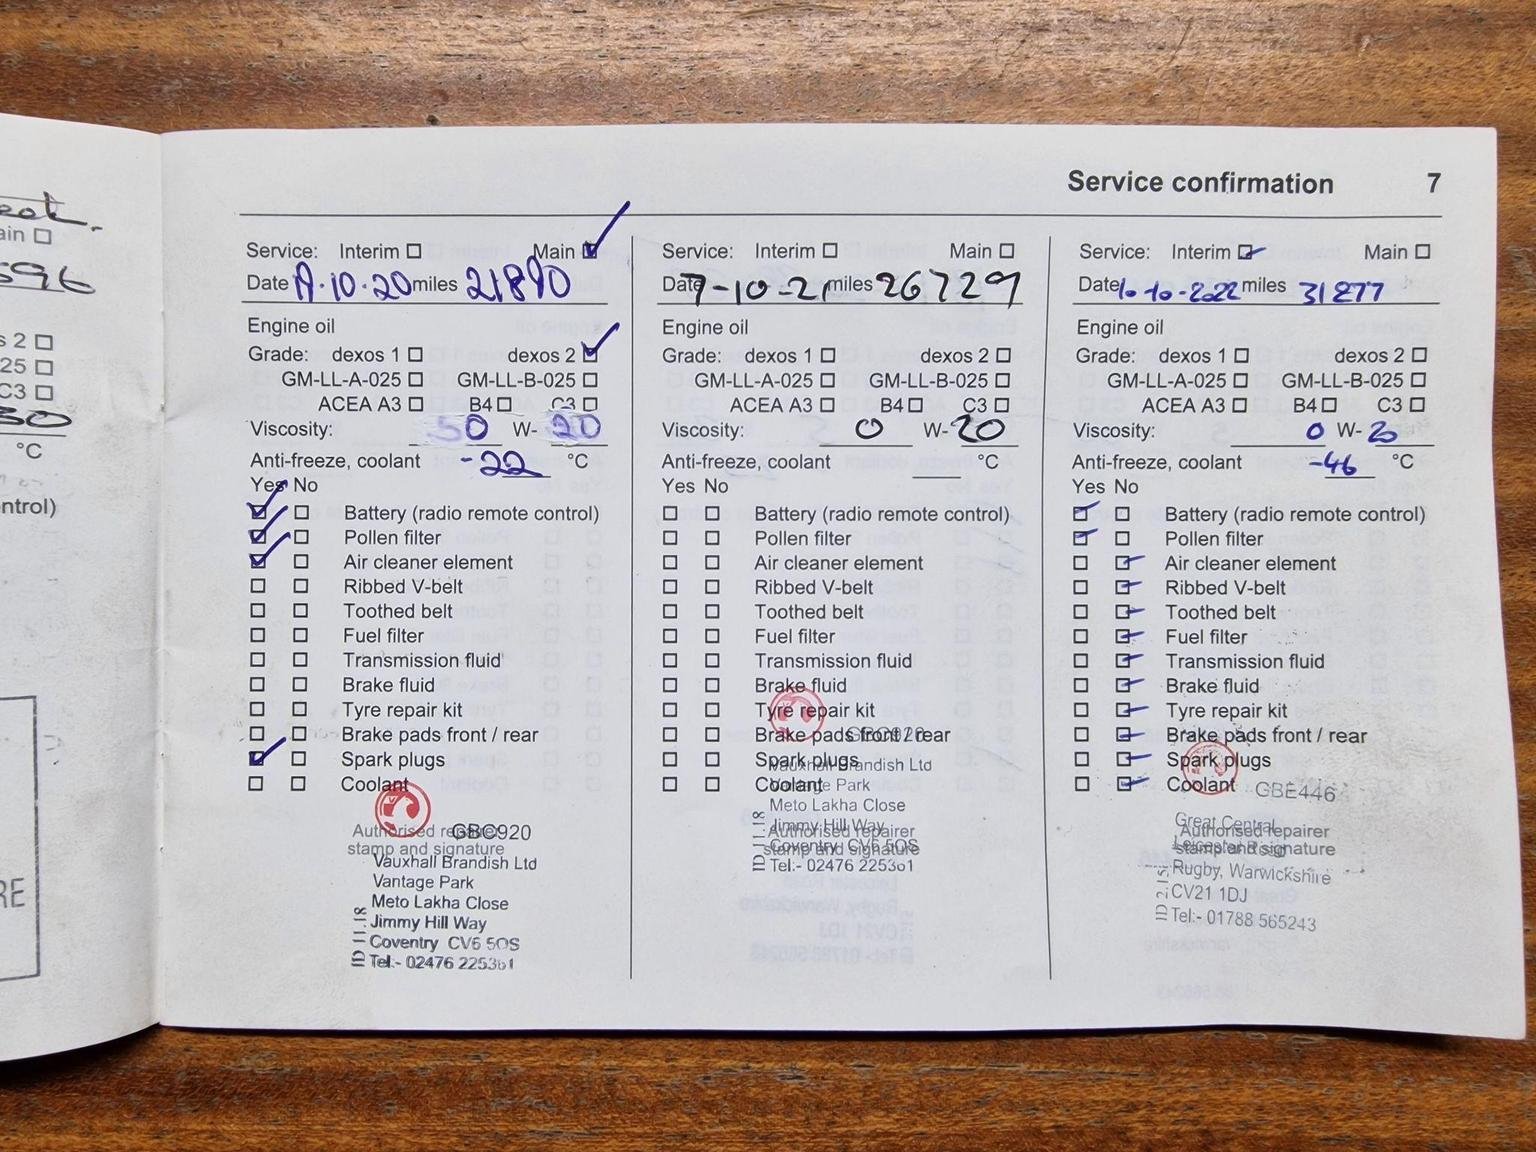 ain
596
s 2
25
C3
30
°C
ntrol)
RE
Service confirmation 7
Service: Interim Main
Date .10.20 miles 21890
Engine oil
Grade: dexos 1 dexos 2
GM-LL-A-025 GM-LL-B-025
ACEA A3 B4 C3
Viscosity: 0 W- 20
Anti-freeze, coolant -22 °C
Yes No
Battery (radio remote control)
Pollen filter
Air cleaner element
Ribbed V-belt
Toothed belt
Fuel filter
Transmission fluid
Brake fluid
Tyre repair kit
Brake pads front / rear
Spark plugs
Coolant
Authorised repairer GBC920
stamp and signature
Vauxhall Brandish Ltd
Vantage Park
Meto Lakha Close
Jimmy Hill Way
Coventry CV6 5OS
ID 11.18 Tel:- 02476 225361
Service: Interim Main
Date 7-10-21 miles 26729
Engine oil
Grade: dexos 1 dexos 2
GM-LL-A-025 GM-LL-B-025
ACEA A3 B4 C3
Viscosity: 0 W- 20
Anti-freeze, coolant °C
Yes No
Battery (radio remote control)
Pollen filter
Air cleaner element
Ribbed V-belt
Toothed belt
Fuel filter
Transmission fluid
Brake fluid
Tyre repair kit
Brake pads front / rear GBC920
Spark plugs
Vauxhall Brandish Ltd
Coolant
Vantage Park
Meto Lakha Close
Jimmy Hill Way
Authorised repairer
Coventry CV6 5OS
stamp and signature
ID 11.18 Tel:- 02476 225361
Service: Interim Main
Date 10-10-2022 miles 31277
Engine oil
Grade: dexos 1 dexos 2
GM-LL-A-025 GM-LL-B-025
ACEA A3 B4 C3
Viscosity: 0 W- 20
Anti-freeze, coolant -46 °C
Yes No
Battery (radio remote control)
Pollen filter
Air cleaner element
Ribbed V-belt
Toothed belt
Fuel filter
Transmission fluid
Brake fluid
Tyre repair kit
Brake pads front / rear
Spark plugs
Coolant GBE446
Great Central
Authorised repairer
Leicester Road
stamp and signature
Rugby, Warwickshire
CV21 1DJ
Tel:- 01788 565243